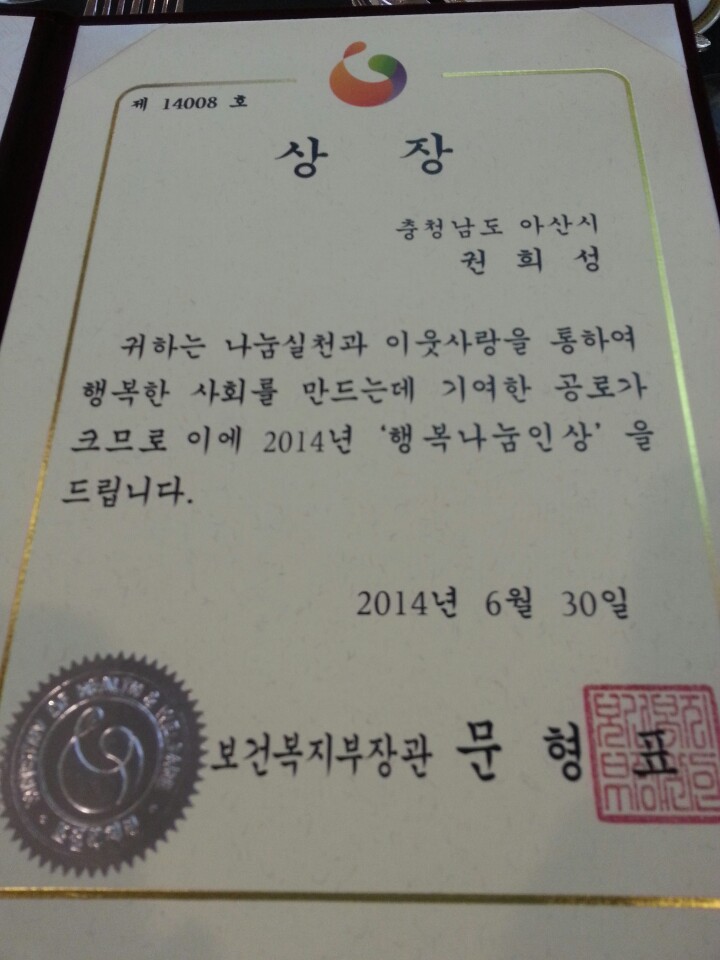 제 14008 호
상 장
충청남도 아산시
권 희 성
귀하는 나눔실천과 이웃사랑을 통하여
행복한 사회를 만드는데 기여한 공로가
크므로 이에 2014년 ‘행복나눔인상’ 을
드립니다.
2014년 6월 30일
보건복지부장관 문 형 표